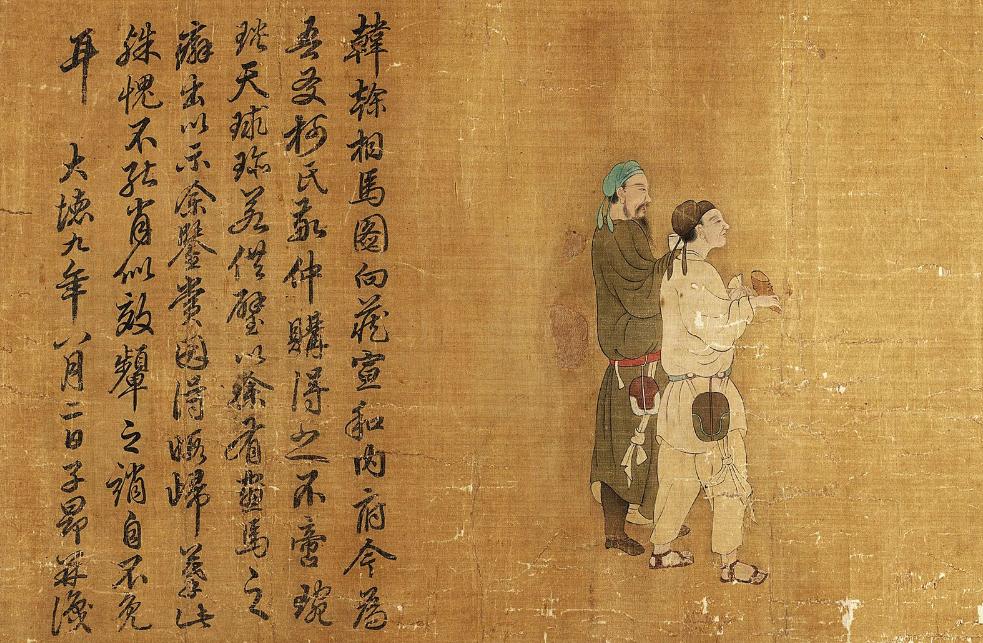 韓幹相馬圖向藏宣和內府今為
吾友柯氏敬仲購得之不啻琬
琰天球珎若拱璧以余有畫馬之
癖出以示余鑒賞因得暇歸摹此
殊愧不能肖似效顰之誚自不免
耳 大德九年八月二日子昂并識